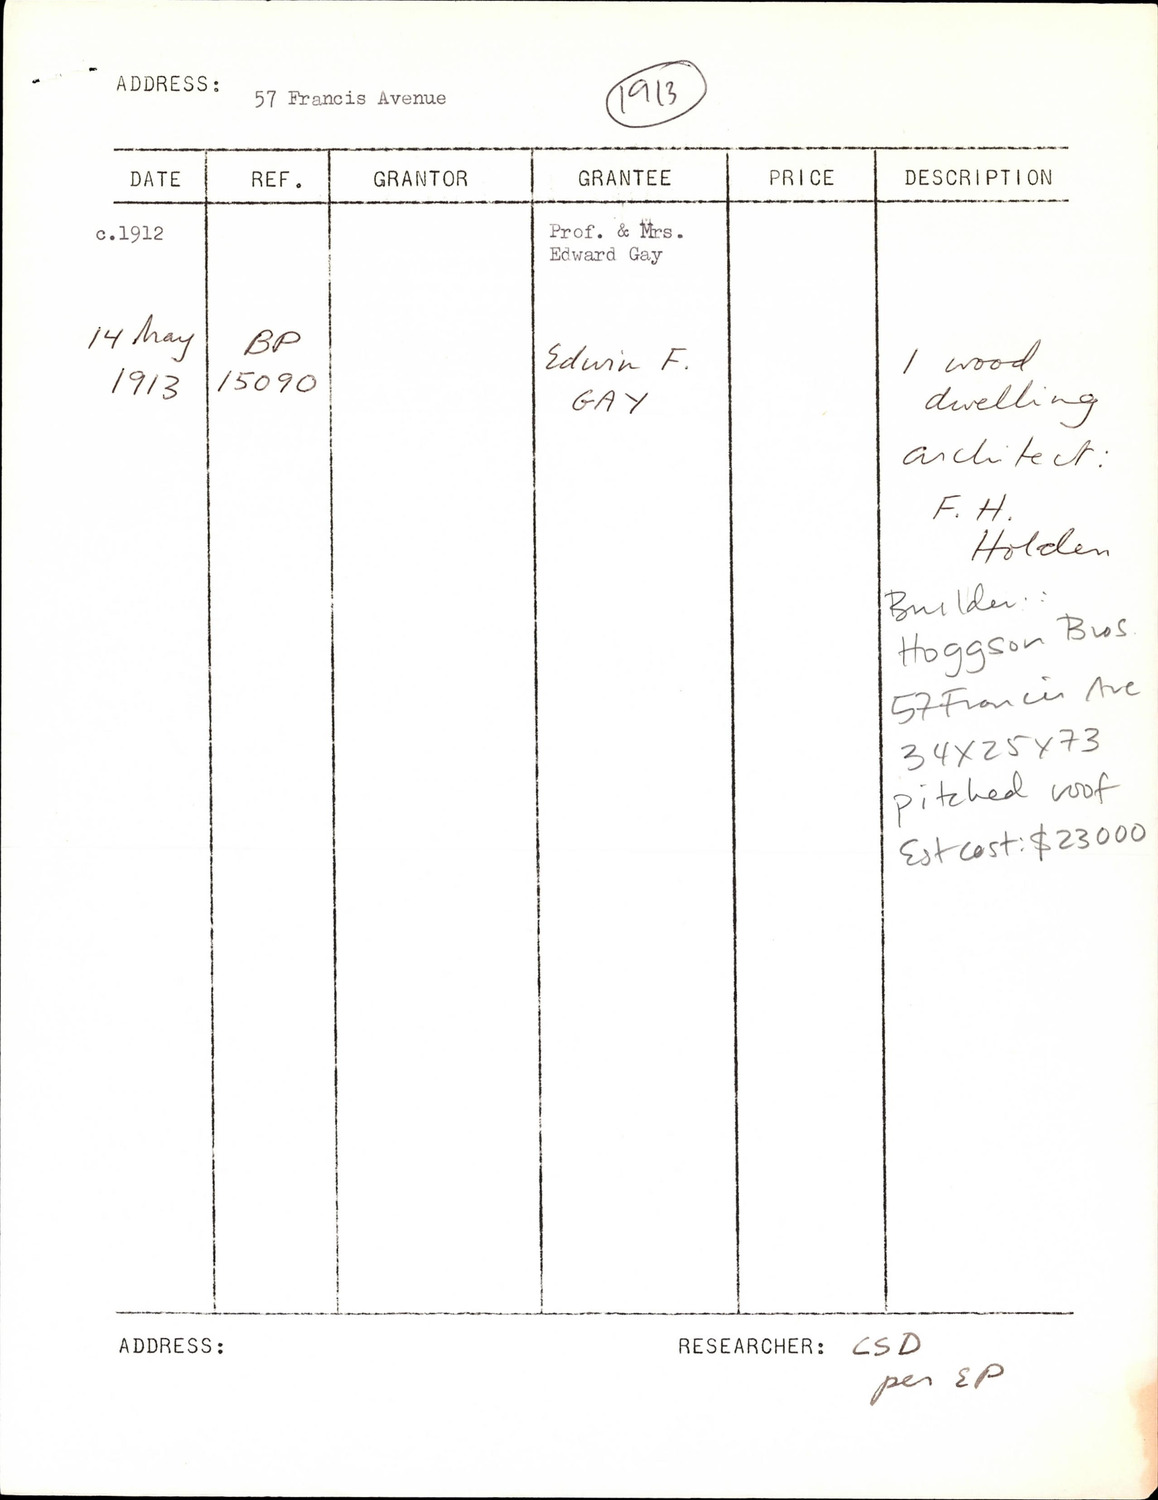 ADDRESS: 57 Francis Avenue
1913
DATE REF. GRANTOR GRANTEE PRICE DESCRIPTION
c.1912 Prof. & Mrs.
Edward Gay
14 May BP Edwin F. 1 wood
1913 15090 GAY dwelling
architect:
F. H.
Holden
Builder::
Hoggson Bros.
57 Francis Ave
34X25X73
pitched roof
Est cost: $23000
ADDRESS: RESEARCHER: CSD
per EP